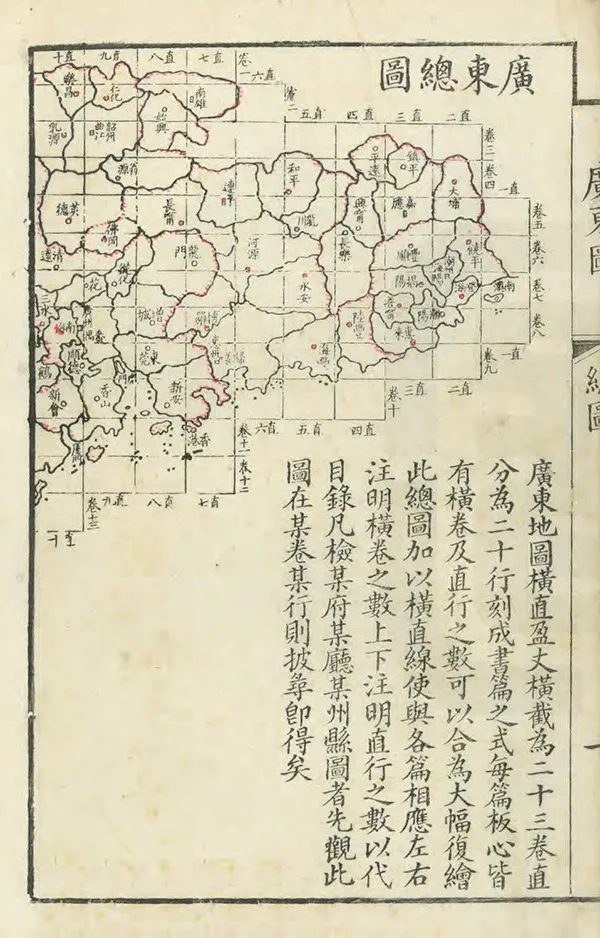 廣東圖
總圖
一
廣東總圖
廣東地圖橫直盈丈橫截為二十三卷直
分為二十行刻成書篇之式每篇板心皆
有橫卷及直行之數可以合為大幅復繪
此總圖加以橫直線使與各篇相應左右
注明橫卷之數上下注明直行之數以代
目錄凡檢某府某廳某州縣圖者先觀此
圖在某卷某行則披尋卽得矣
直一
直二
直三
直四
直五
直六
直七
直八
直九
直十
卷一
卷二
卷三
卷四
卷五
卷六
卷七
卷八
卷九
卷十
卷十一
卷十二
卷十三
直一
直二
直三
直四
直五
直六
直七
直八
直九
大埔
饒平
南澳
鎮平
平遠
嘉應
興甯
長樂
豐順
揭陽
潮陽
普甯
惠來
陸豐
海豐
和平
龍川
永安
河源
連平
長甯
龍門
增城
東莞
新安
香港
南雄
始興
仁化
樂昌
韶州
曲江
乳源
翁源
英德
佛岡
清遠
從化
花
三水
番禺
南海
順德
香山
新會
鶴